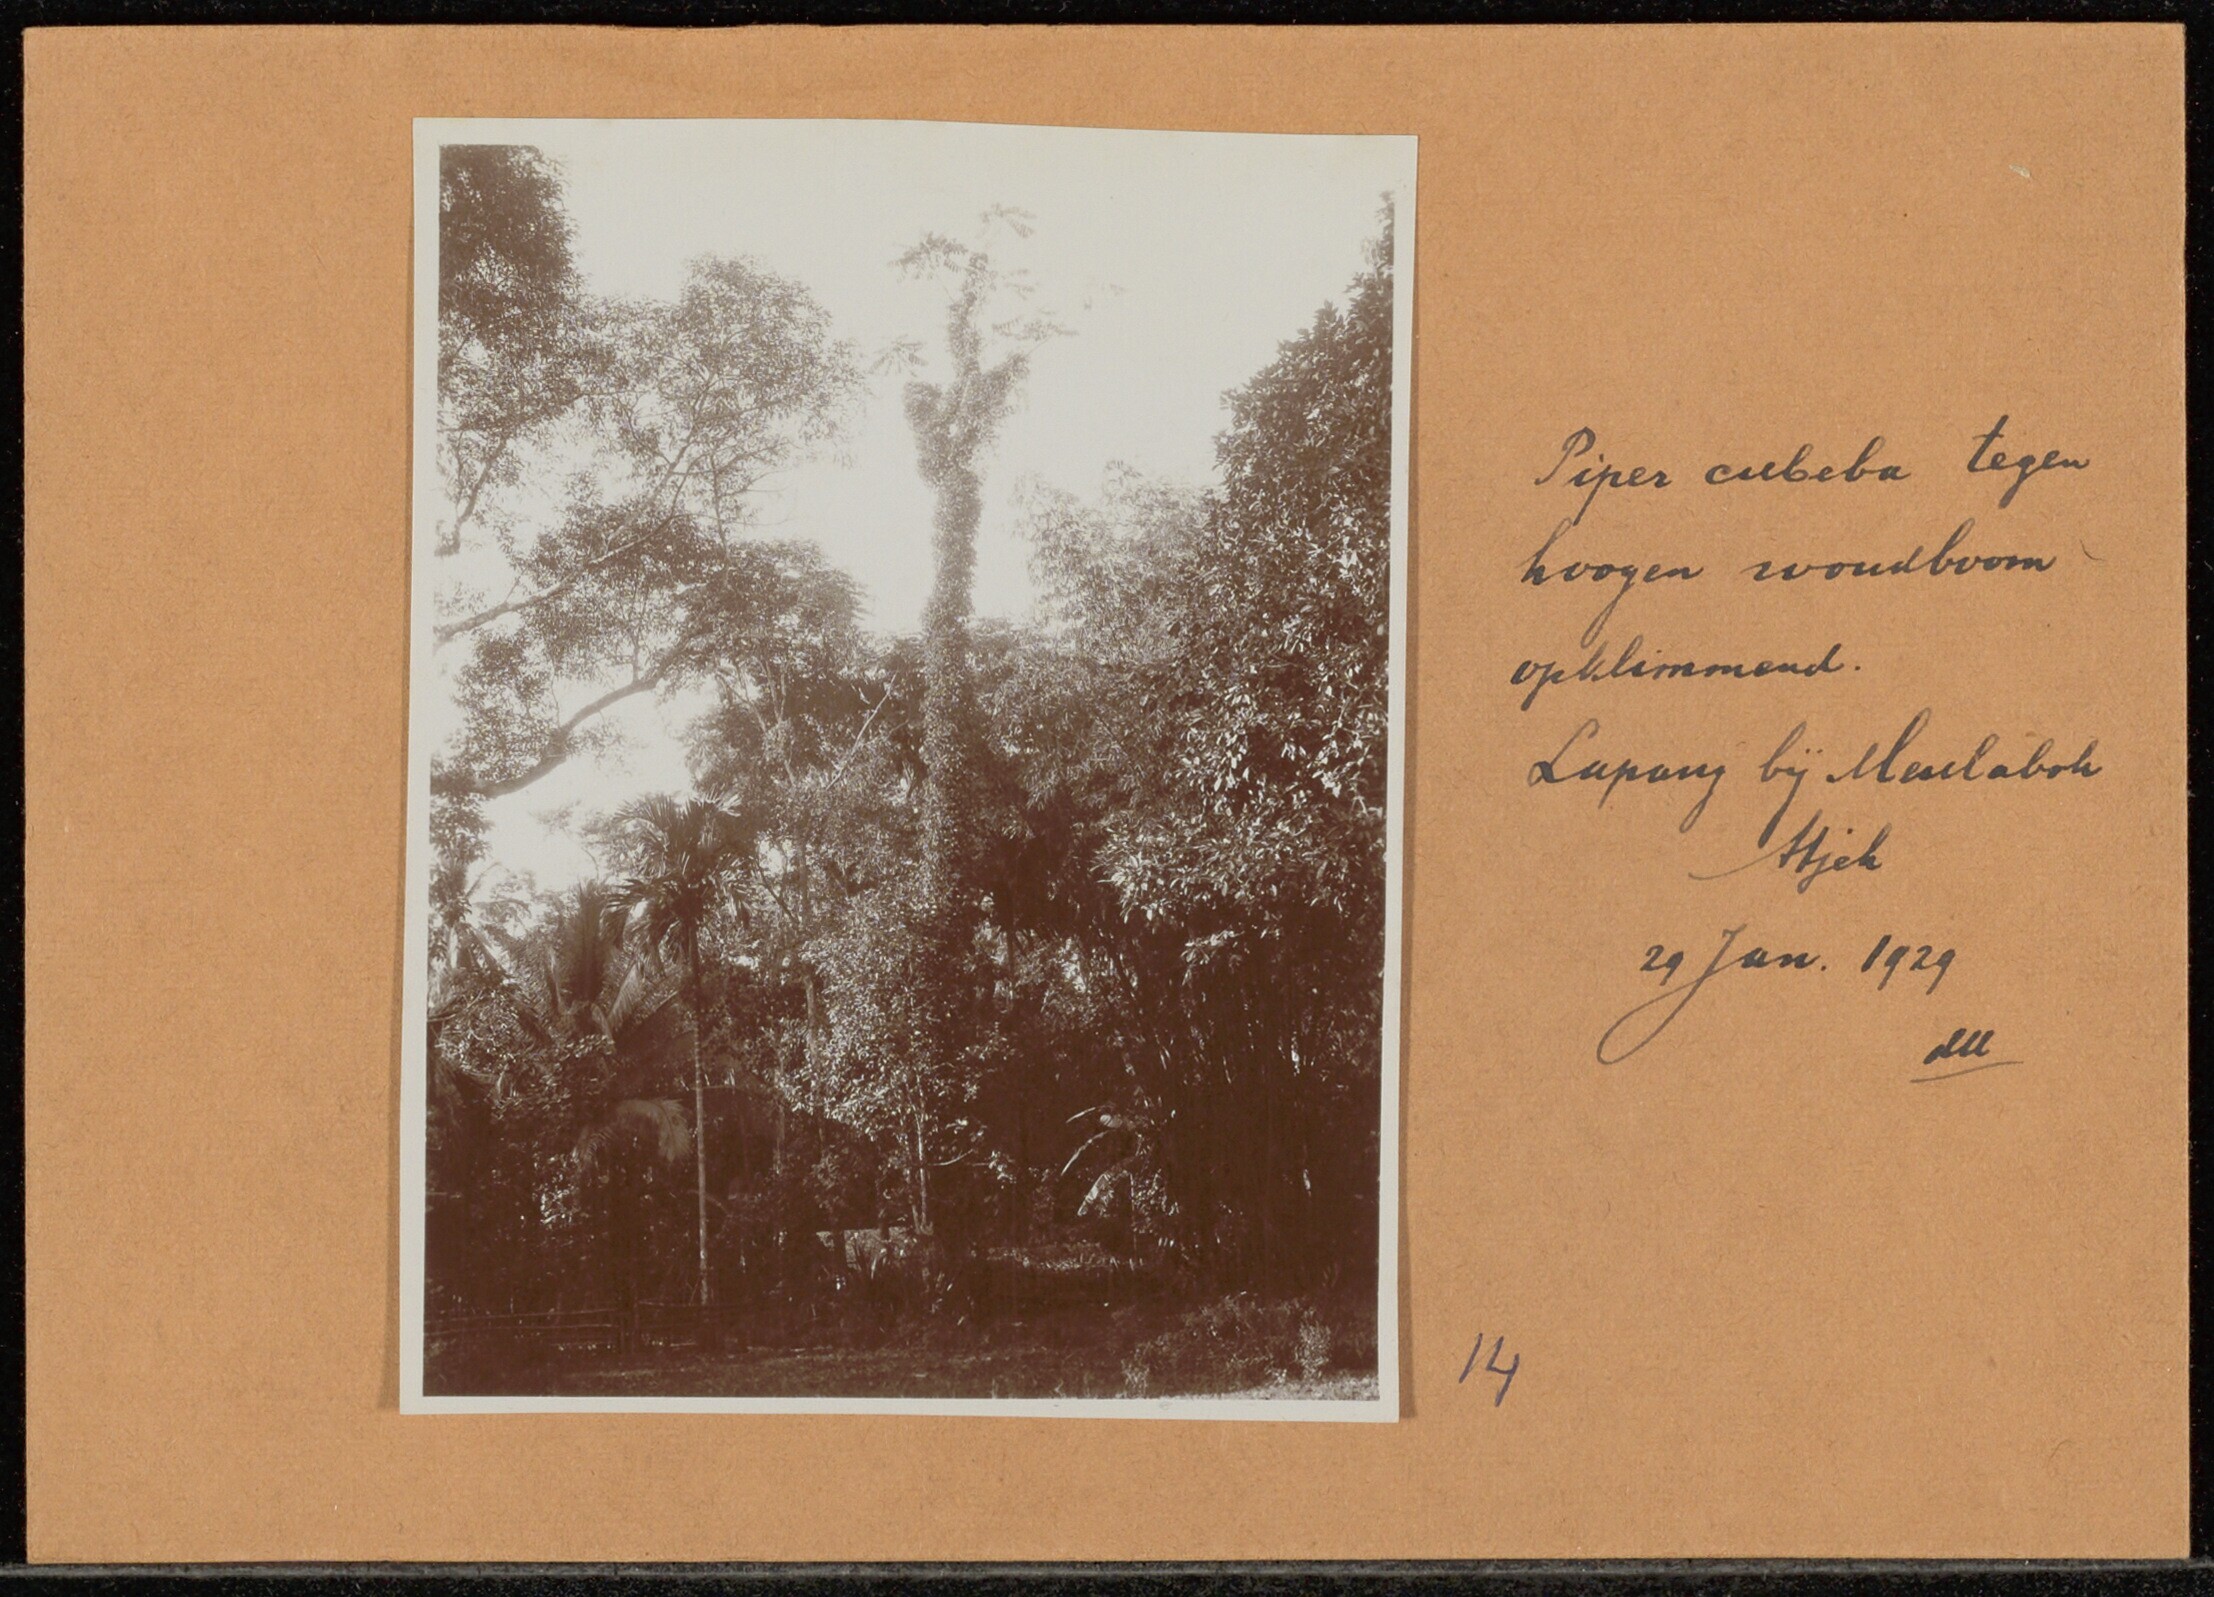 Piper cubeba tegen
hoogen woudboom
opklimmend.
Lapang bij Meulaboh
Atjeh
29 Jan. 1929
14